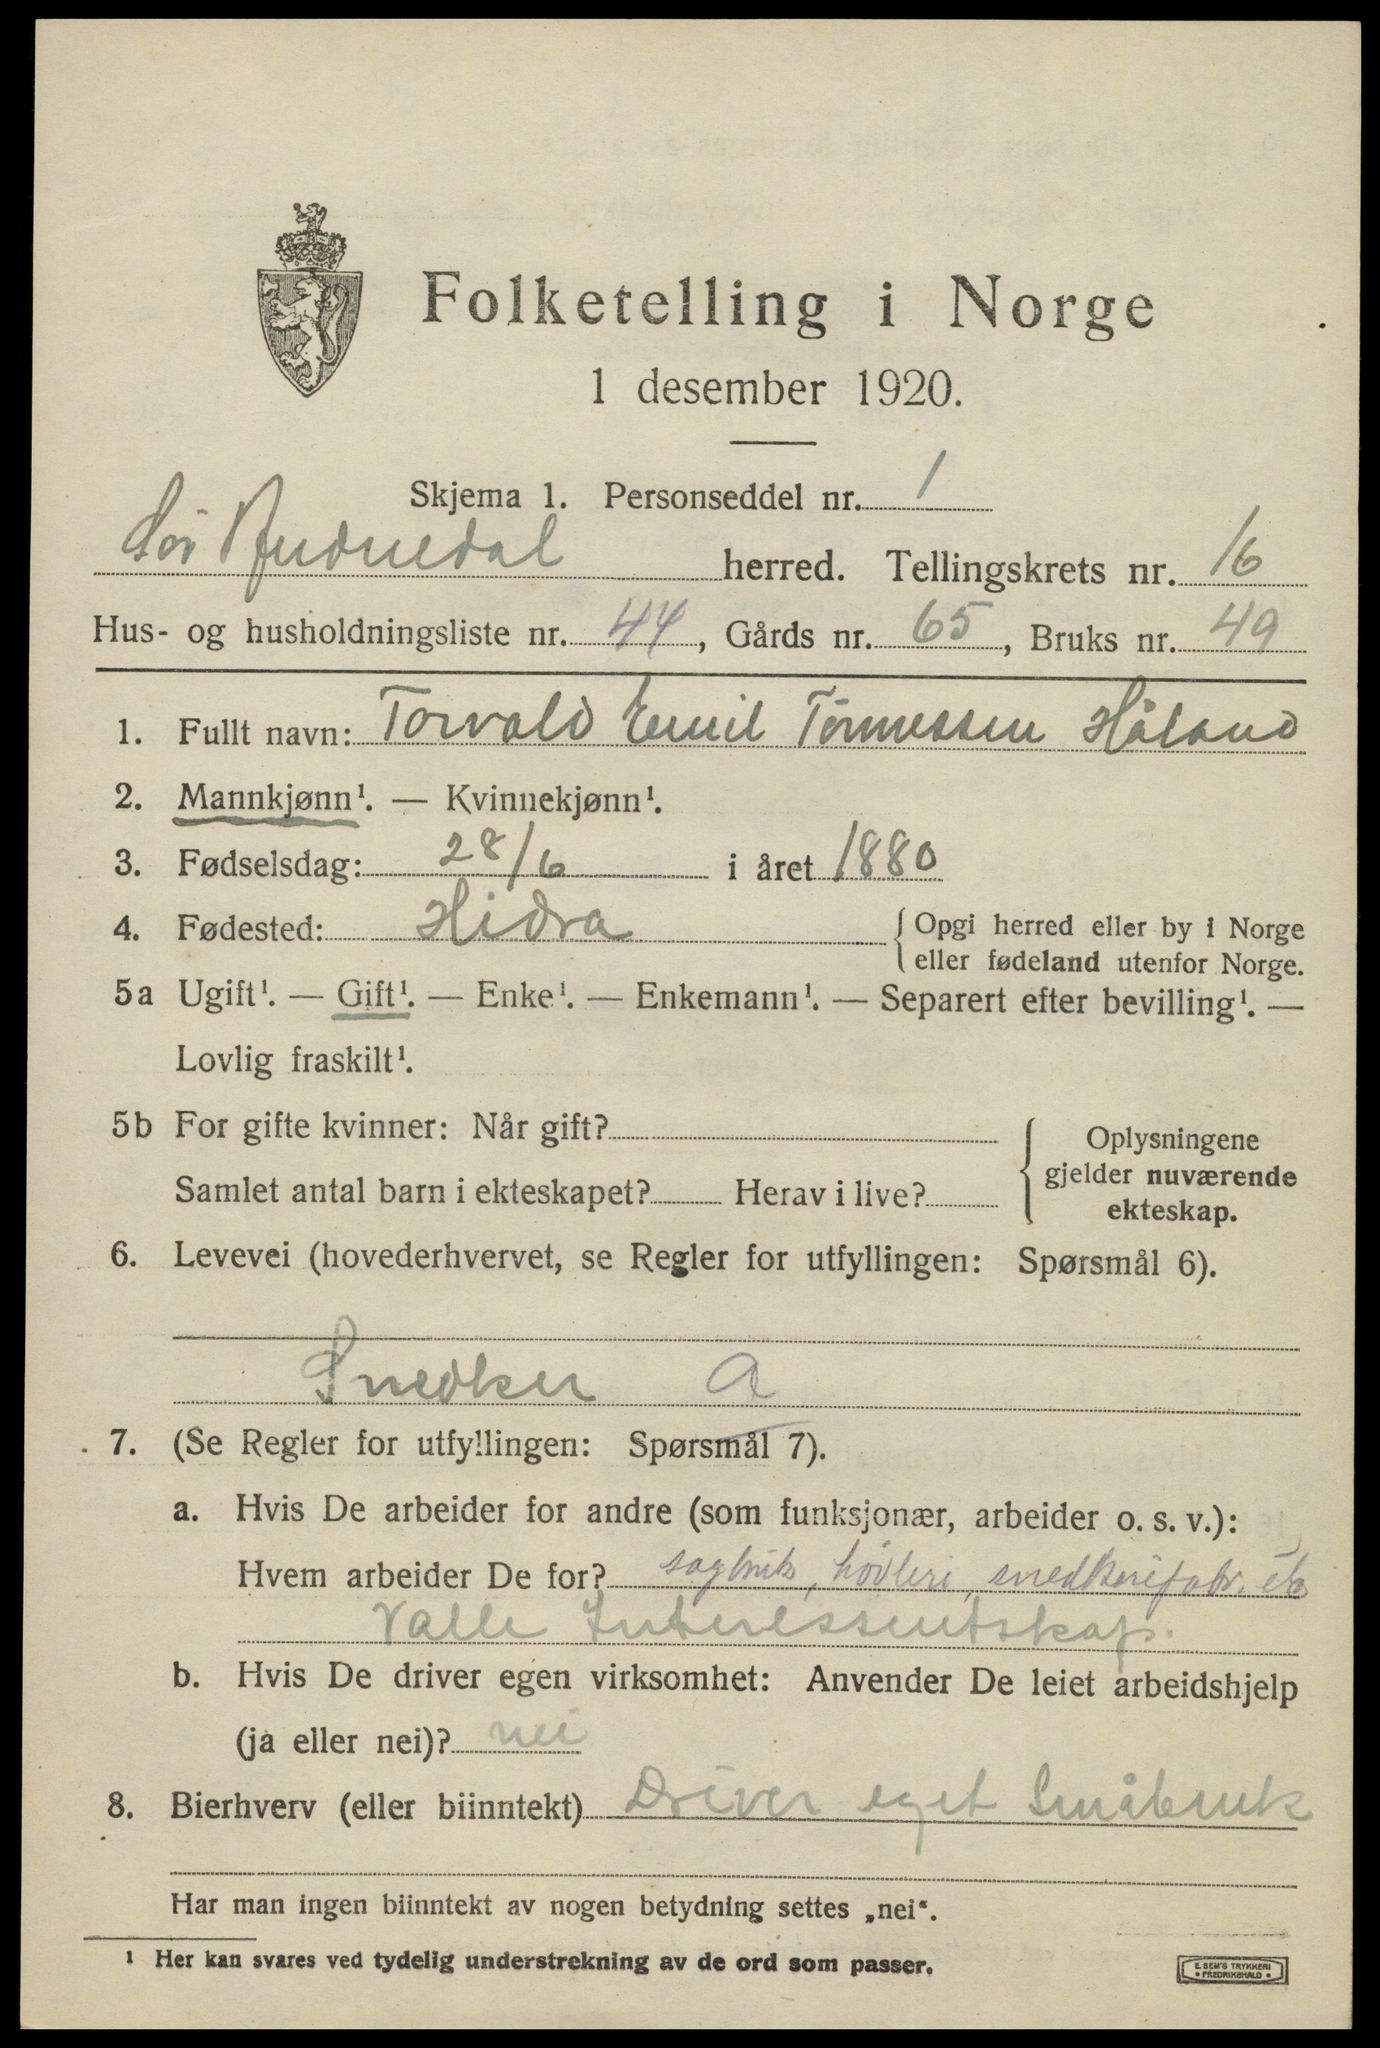 Folketelling i Norge
1 desember 1920.
Skjema 1. Personseddel nr. 1
Sør Audnedal herred. Tellingskrets nr. 16
Hus- og husholdningsliste nr. 44, Gårds nr. 65, Bruks nr. 49
1. Fullt navn: Torvald Emil Tönnessen Håland
2. Mannkjønn¹. — Kvinnekjønn¹.
3. Fødselsdag: 28/6 i året 1880
4. Fødested: Hidra { Opgi herred eller by i Norge
eller fødeland utenfor Norge.
5a Ugift¹. — Gift¹. — Enke¹. — Enkemann¹. — Separert efter bevilling¹. —
Lovlig fraskilt¹.
5b For gifte kvinner: Når gift?
Samlet antal barn i ekteskapet? Herav i live?
{ Oplysningene
gjelder nuværende
ekteskap.
6. Levevei (hovederhvervet, se Regler for utfyllingen: Spørsmål 6).
Snedker a
7. (Se Regler for utfyllingen: Spørsmål 7).
a. Hvis De arbeider for andre (som funksjonær, arbeider o. s. v.):
Hvem arbeider De for? sagbruk, høvleri, snedkerifabr.
Valle Interessentskap.
b. Hvis De driver egen virksomhet: Anvender De leiet arbeidshjelp
(ja eller nei)? nei
8. Bierhverv (eller biinntekt) Driver eget Småbruk
Har man ingen biinntekt av nogen betydning settes „nei“.
¹ Her kan svares ved tydelig understrekning av de ord som passer.
E. SEM'S TRYKKERI
• FREDRIKSHALD •